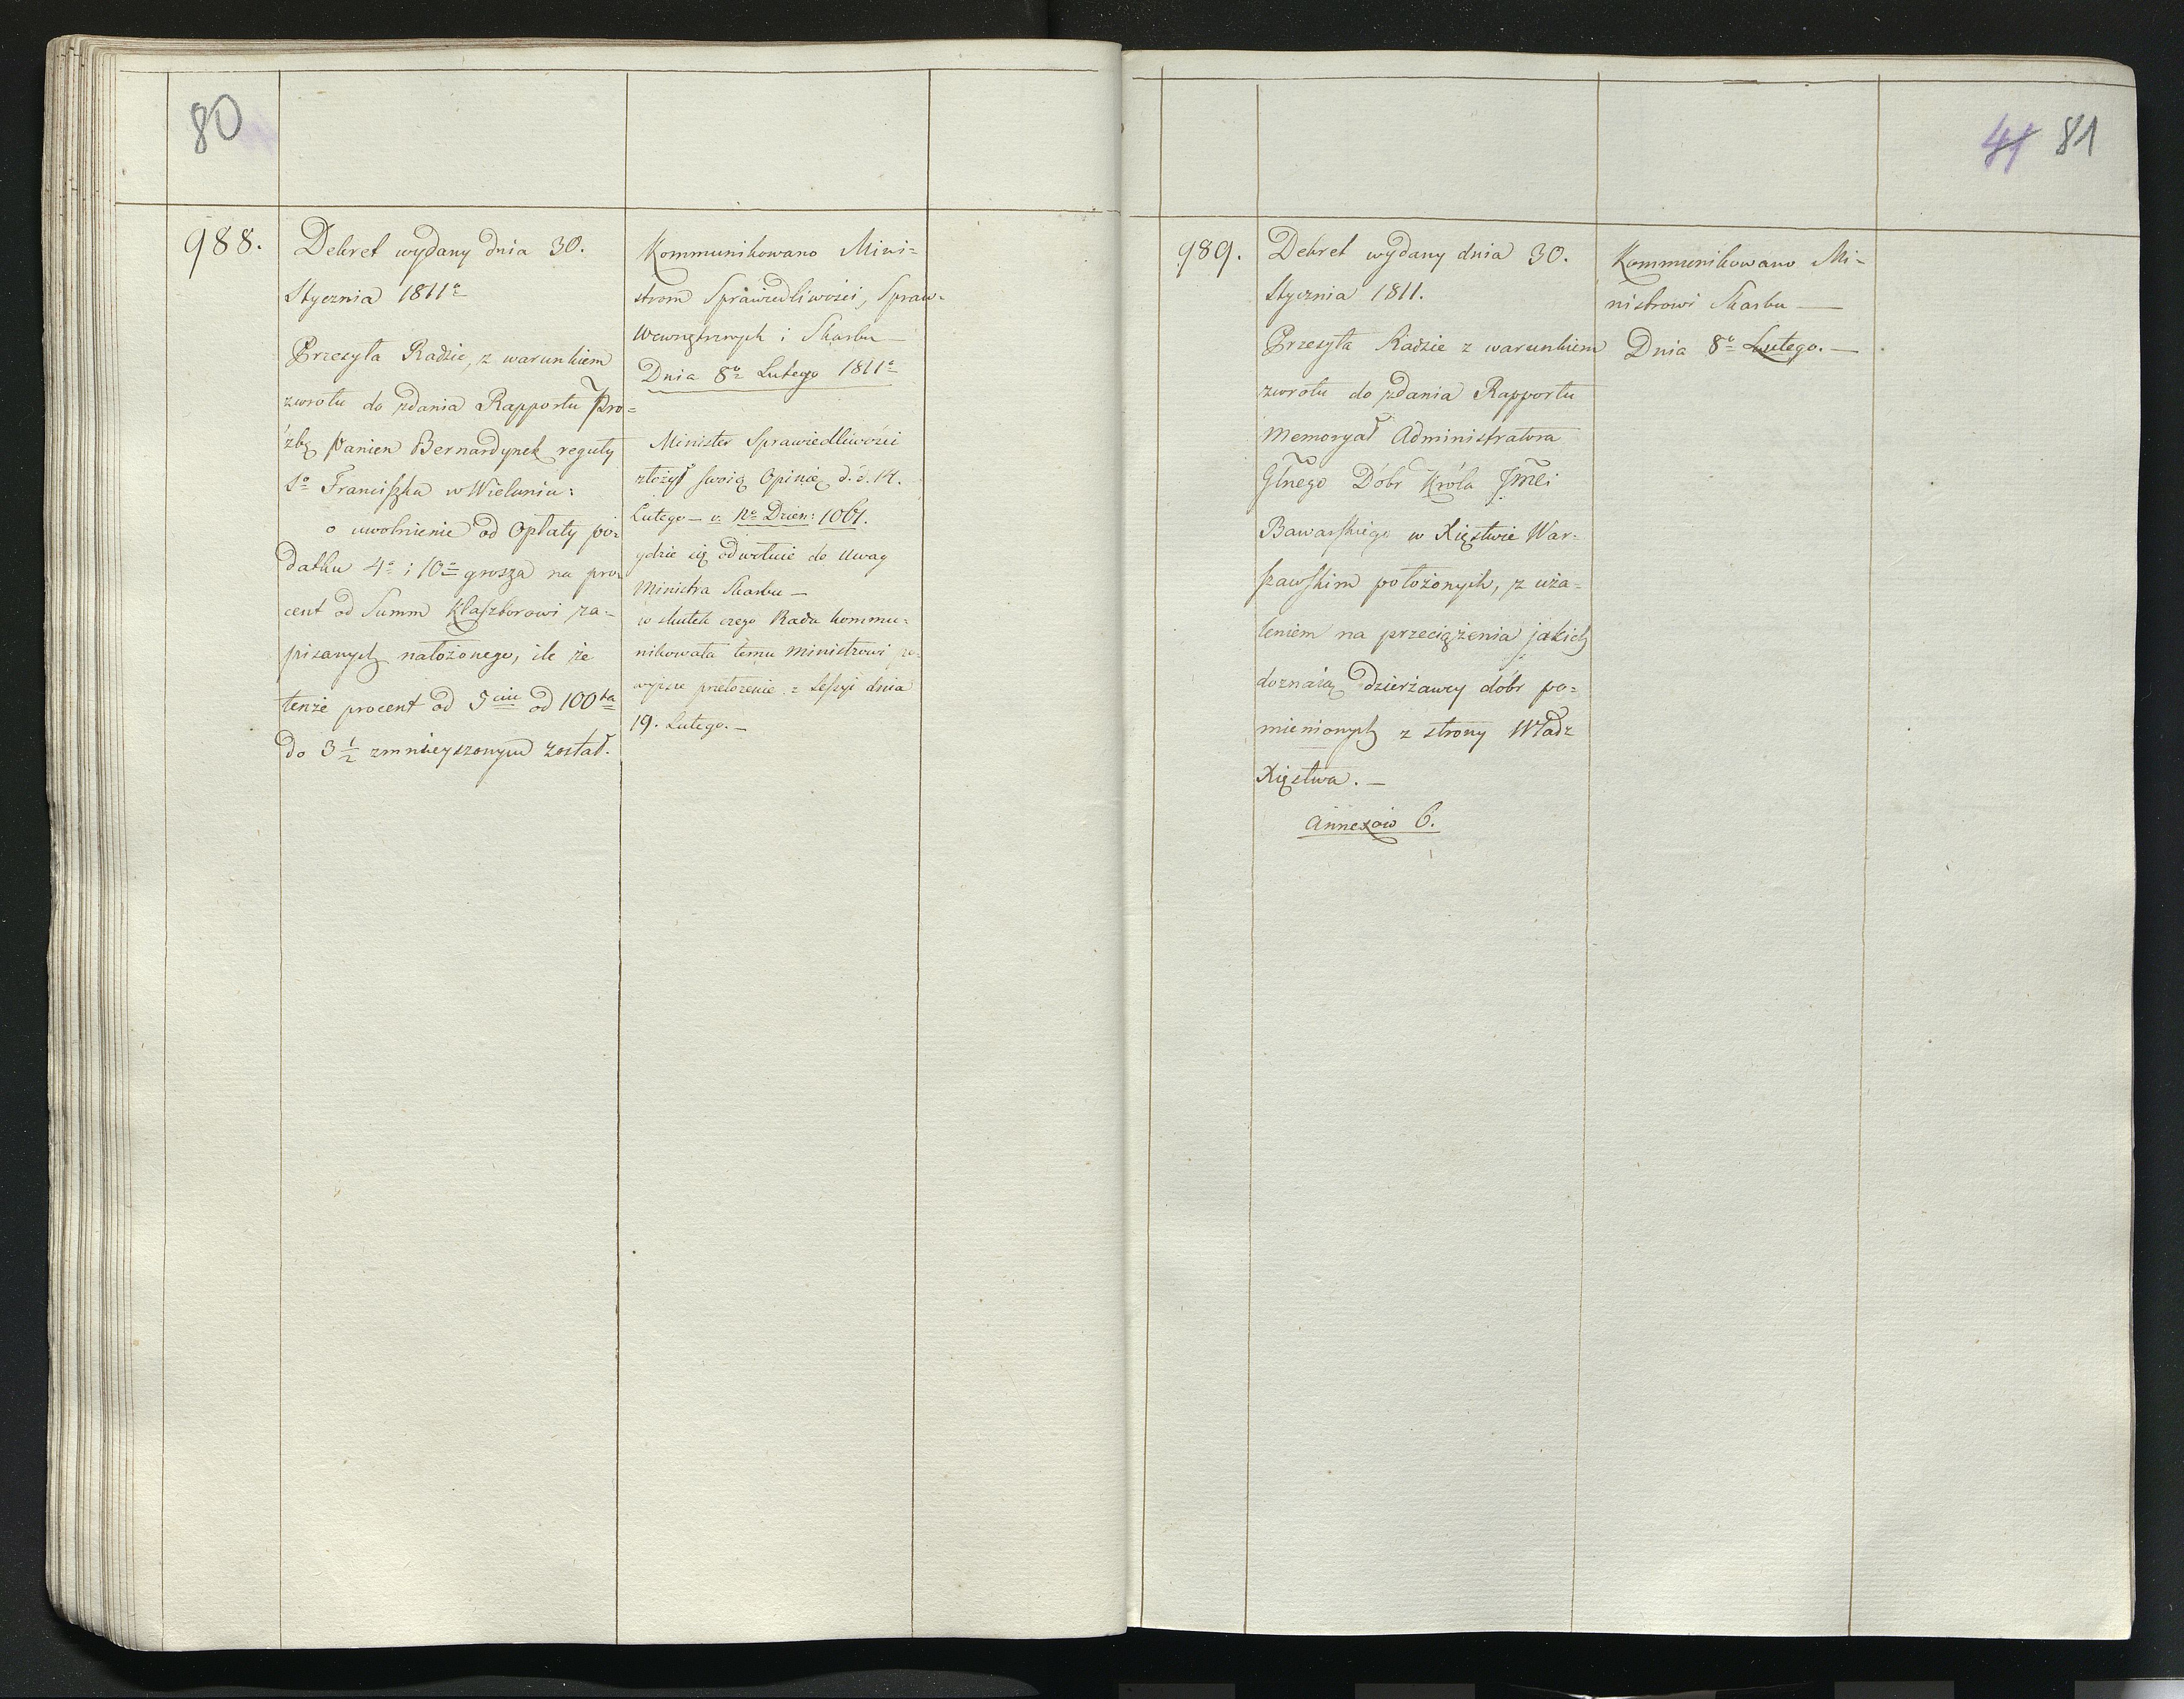 80
988.
Dekret wydany dnia 30.
Stycznia 1811º
Przesyła Radzie, z warunkiem
zwrotu do zdania Rapportu Pro=
źbę Panien Bernardynek reguły
Sº Franciszka w Wieluniu:
o uwolnienie od Opłaty po=
datku 4º i 10º grosza na pro=
cent od Summ Klasztorowi za=
pisanych nałożonego, ile że
tenże procent od 5ciu od 100ta
do 3 1/2 zmnieyszonym został.
Kommunikowano Mini=
strom Sprawiedliwości, Spraw=
Wewnętrznych i Skarbu
Dnia 8º Lutego 1811º
Minister Sprawiedliwości
złożył swoią Opinię d. d. 14.
Lutego — v. Nº Dzien: 1061.
gdzie się odwołuie do Uwag
Ministra Skarbu —
w skutek czego Rada kommu=
nikowała temu Ministrowi po=
wyższe przełożenie z Sessyi dnia
19. Lutego. —
41 81
989.
Dekret wydany dnia 30.
Stycznia 1811.
Przesyła Radzie z warunkiem
zwrotu do zdania Rapportu
Memoryał Administratora
Głnego Dóbr Króla Jmci
Bawarskiego w Xięstwie War=
szawskim położonych, z uża=
leniem na przeciążenia jakich
doznaią dzierżawcy dobr po=
mienionych z strony Władz
Xięstwa. —
Annexow 6.
Kommunikowano Mi=
nistrowi Skarbu —
Dnia 8º Lutego. —